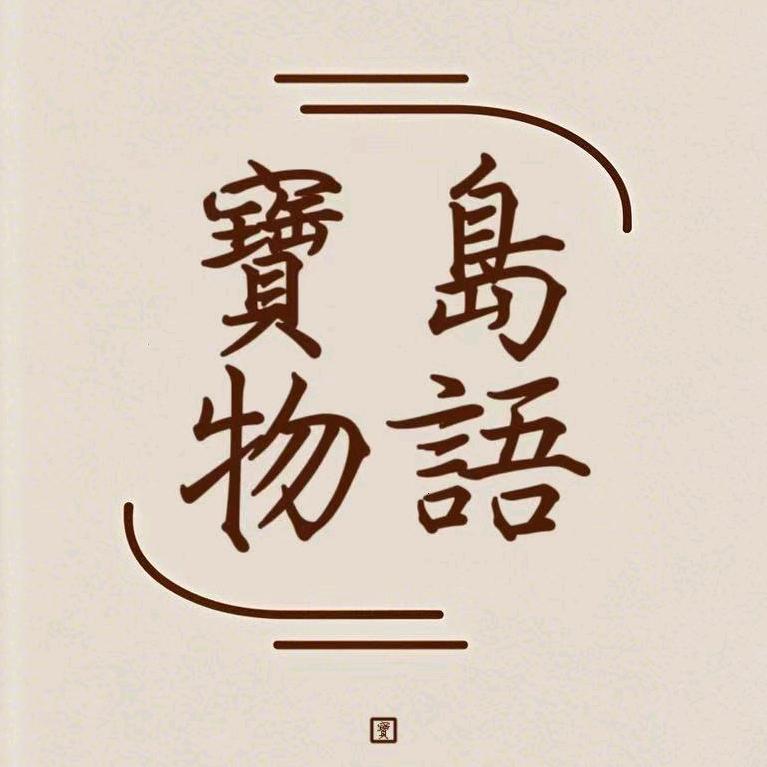 島語
寶物
寶